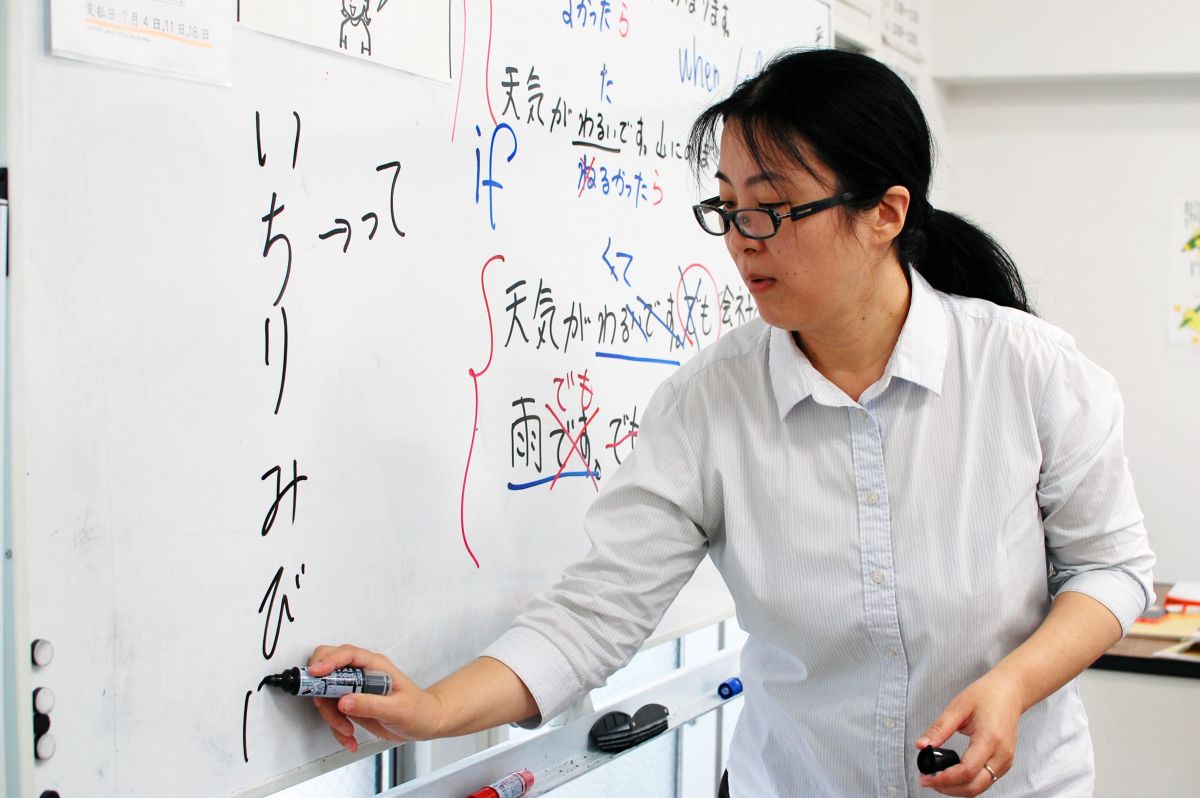 支払日:7月4日,11日,18日
よかったら
when
た
天気がわるいです。山に
if
わるかったら
くて
天気がわるいです。でも 会社
でも
雨です。でも
い
ち→って
り
み
び